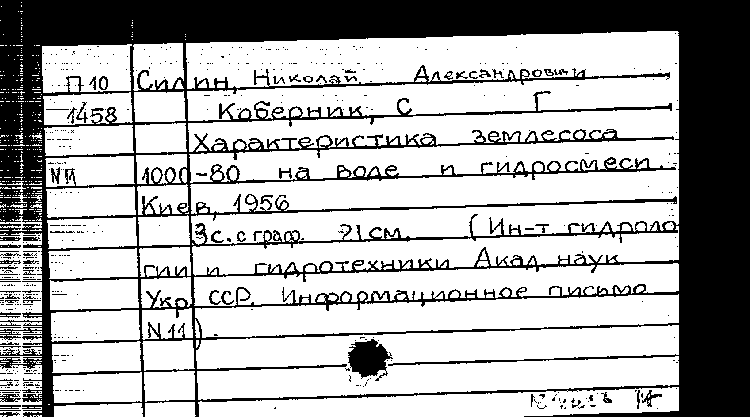 П10 Силин, Николай Александрович
1458 Коберник, С Г
Характеристика землесоса
1000-80 на воде и гидросмеси.
Киев, 1956
3с. с граф. 21 см. (Ин-т гидроло
гии и гидротехники Акад. наук
Укр ССР. Информационное письмо
N.11).